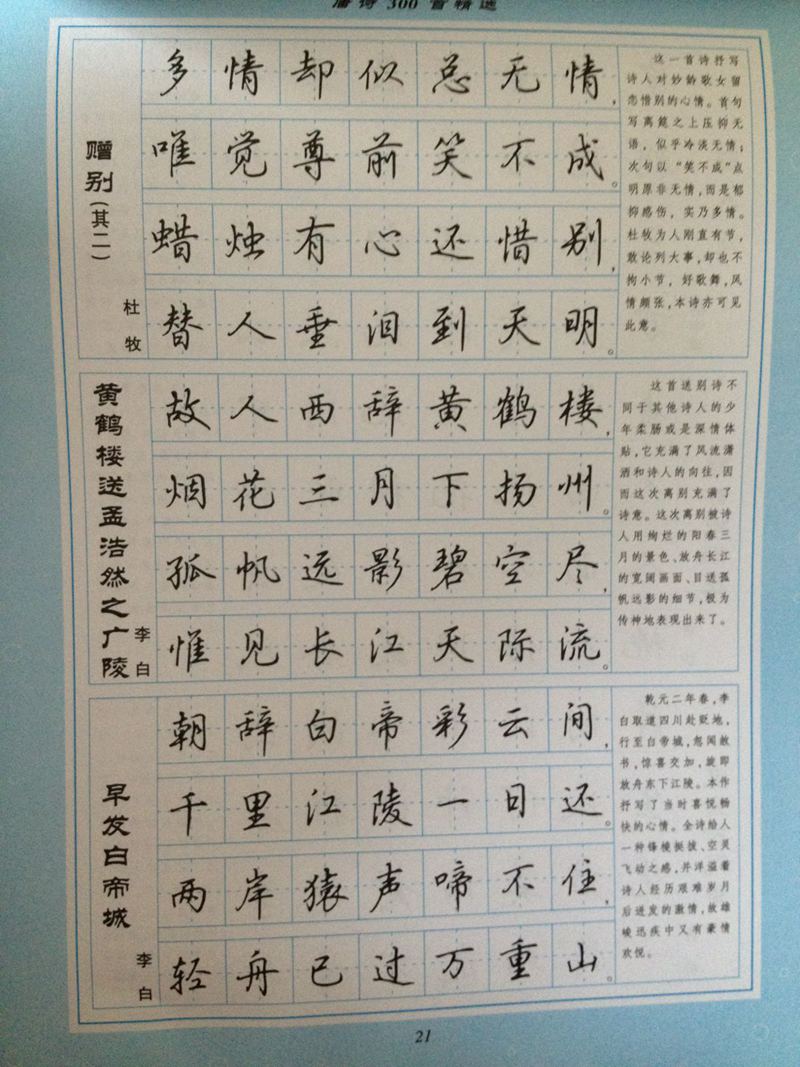 唐诗300首精选
赠别(其二)
杜牧
多情却似总无情,
唯觉尊前笑不成。
蜡烛有心还惜别,
替人垂泪到天明。
这一首诗抒写
诗人对妙龄歌女留
恋惜别的心情。首句
写离筵之上压抑无
语,似乎冷淡无情;
次句以“笑不成”点
明原非无情,而是郁
抑感伤,实乃多情。
杜牧为人刚直有节,
敢论列大事,却也不
拘小节,好歌舞,风
情颇张,本诗亦可见
此意。
黄鹤楼送孟浩然之广陵
李白
故人西辞黄鹤楼,
烟花三月下扬州。
孤帆远影碧空尽,
惟见长江天际流。
这首送别诗不
同于其他诗人的少
年柔肠或是深情体
贴,它充满了风流潇
洒和诗人的向往,因
而这次离别充满了
诗意。这次离别被诗
人用绚烂的阳春三
月的景色、放舟长江
的宽阔画面、目送孤
帆远影的细节,极为
传神地表现出来了。
早发白帝城
李白
朝辞白帝彩云间,
千里江陵一日还。
两岸猿声啼不住,
轻舟已过万重山。
乾元二年春,李
白取道四川赴贬地,
行至白帝城,忽闻赦
书,惊喜交加,旋即
放舟东下江陵。本作
抒写了当时喜悦畅
快的心情。全诗给人
一种锋棱挺拔、空灵
飞动之感,并洋溢着
诗人经历艰难岁月
后迸发的激情,故雄
峻迅疾中又有豪情
欢悦。
21